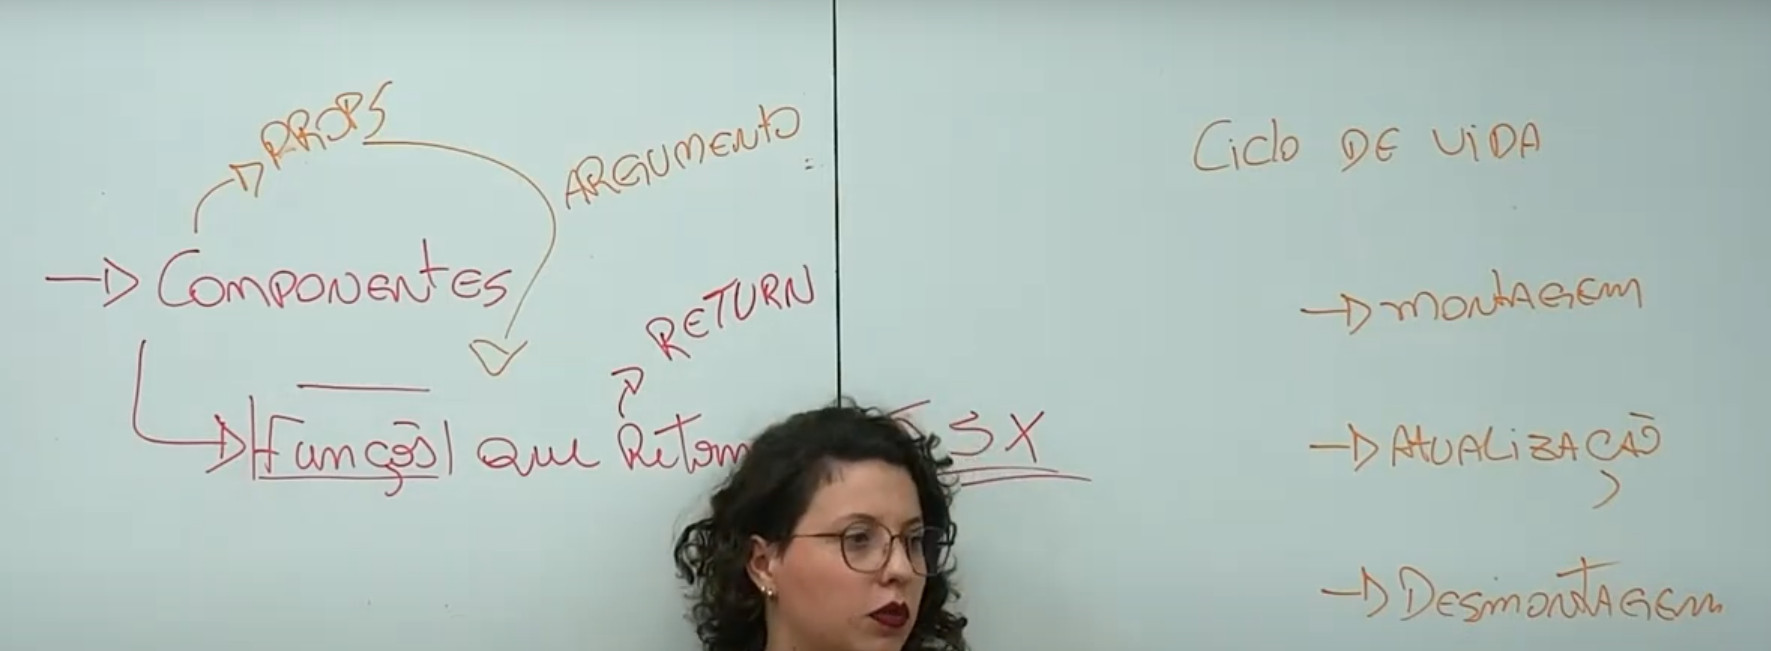 PROPS
ARGUMENTO
Componentes
RETURN
Função que SX
Ciclo DE ViDA
MONTAGEM
ATUALIZAÇÃO
DESMONTAGEM